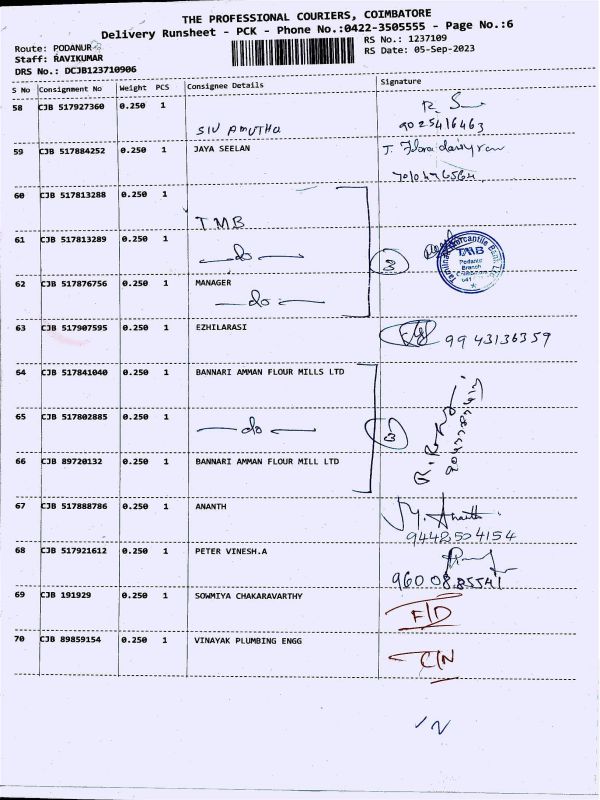 THE PROFESSIONAL COURIERS, COIMBATORE
Delivery Runsheet - PCK - Phone No.:0422-3505555 - Page No.:6
Route: PODANUR
Staff: RAVIKUMAR
DRS No.: DCJB123710906
RS No.: 1237109
RS Date: 05-Sep-2023
S No Consignment No Weight PCS Consignee Details Signature
58 CJB 517927360 0.250 1 SIV AMUTHA
9025416463
59 CJB 517884252 0.250 1 JAYA SEELAN
60 CJB 517813288 0.250 1 TMB
61 CJB 517813289 0.250 1 do
3
TMB
Podanur
Branch
62 CJB 517876756 0.250 1 MANAGER
do
63 CJB 517907595 0.250 1 EZHILARASI 9943136359
64 CJB 517841040 0.250 1 BANNARI AMMAN FLOUR MILLS LTD
65 CJB 517802885 0.250 1 do 3
66 CJB 89720132 0.250 1 BANNARI AMMAN FLOUR MILL LTD
67 CJB 517888786 0.250 1 ANANTH
9442504154
68 CJB 517921612 0.250 1 PETER VINESH.A
9600885541
69 CJB 191929 0.250 1 SOWMIYA CHAKARAVARTHY
F/D
70 CJB 89859154 0.250 1 VINAYAK PLUMBING ENGG
C/N